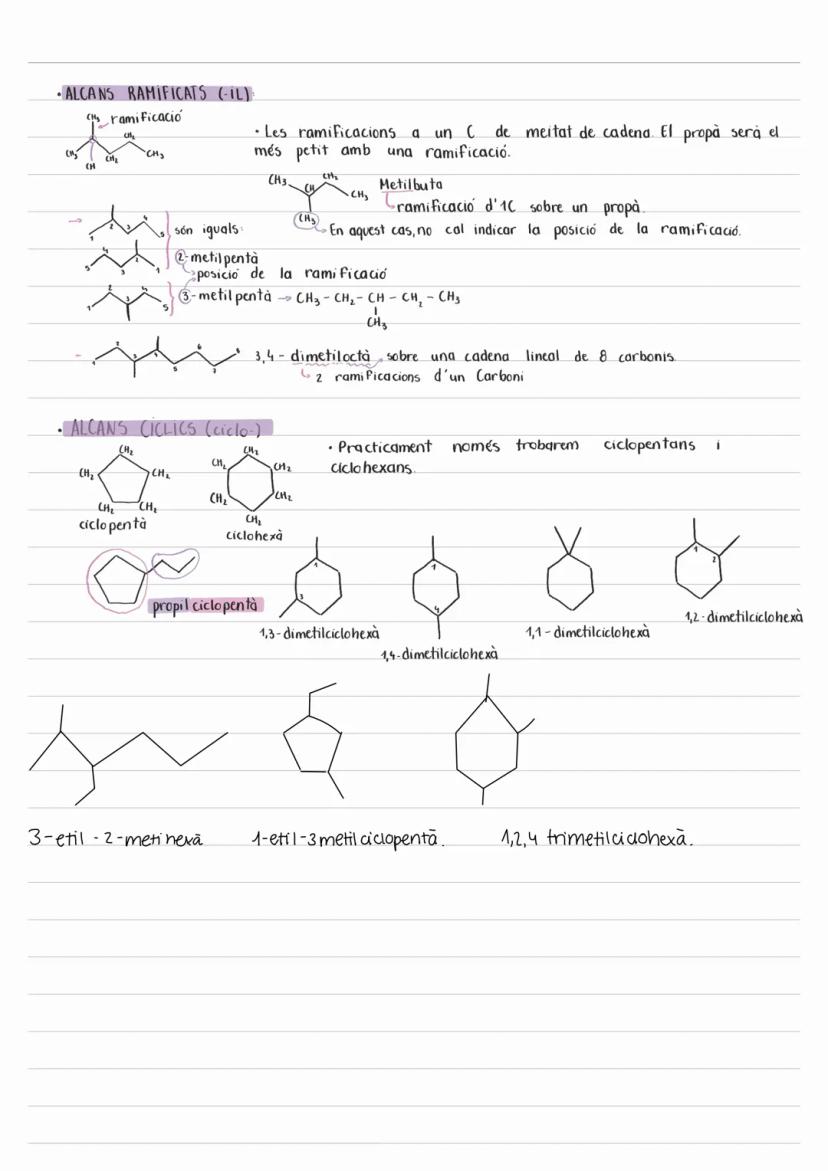 • ALCANS RAMIFICATS (-IL):
CH₃ ramificació
CH₂
CH₃ CH CH₂ CH₃
• Les ramificacions a un C de meitat de cadena. El propà serà el
més petit amb una ramificació.
CH₃ CH CH₂ CH₃
CH₃
Metilbuta
ramificació d'1C sobre un propà.
En aquest cas, no cal indicar la posició de la ramificació.
1 2 3 4 5
són iguals:
5 4 3 2 1
2-metilpentà
posició de la ramificació
1 2 3 4 5
3-metilpentà → CH₃ - CH₂ - CH - CH₂ - CH₃
CH₃
1 2 3 4 5 6 7 8
3,4-dimetiloctà sobre una cadena lineal de 8 carbonis.
2 ramificacions d'un Carboni
• ALCANS CÍCLICS (ciclo-)
• Practicament només trobarem ciclopentans i
ciclohexans.
CH₂
CH₂ CH₂
CH₂ CH₂
ciclopentà
CH₂
CH₂ CH₂
CH₂ CH₂
CH₂
ciclohexà
propilciclopentà
1
3
1,3-dimetilciclohexà
1
4
1,4-dimetilciclohexà
1,1-dimetilciclohexà
1
2
1,2-dimetilciclohexà
3-etil-2-metihexà
1-etil-3metilciclopentà.
1,2,4 trimetilciclohexà.